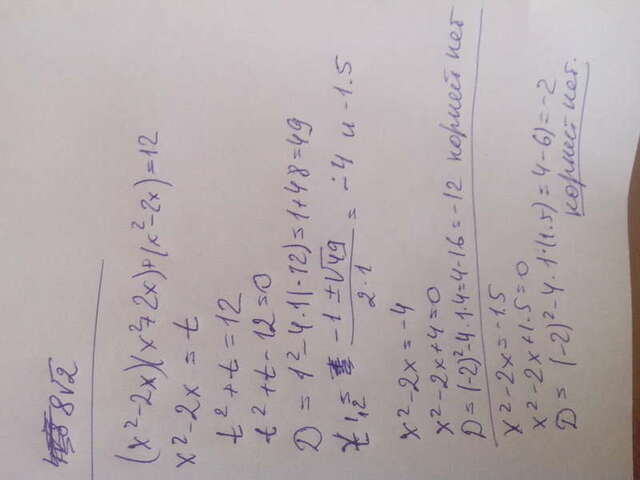 8√2
(x²-2x)(x²+2x)+(x²-2x)=12
x²-2x=t
t²+t=12
t²+t-12=0
D=1²-4·1(-12)=1+48=49
t₁,₂= (-1±√49)/(2·1) = -4 и -1.5
x²-2x=-4
x²-2x+4=0
D=(-2)²-4·1·4=4-16=-12 корней нет
x²-2x=-1.5
x²-2x+1.5=0
D=(-2)²-4·1·(1.5)=4-6)=-2
корней нет.